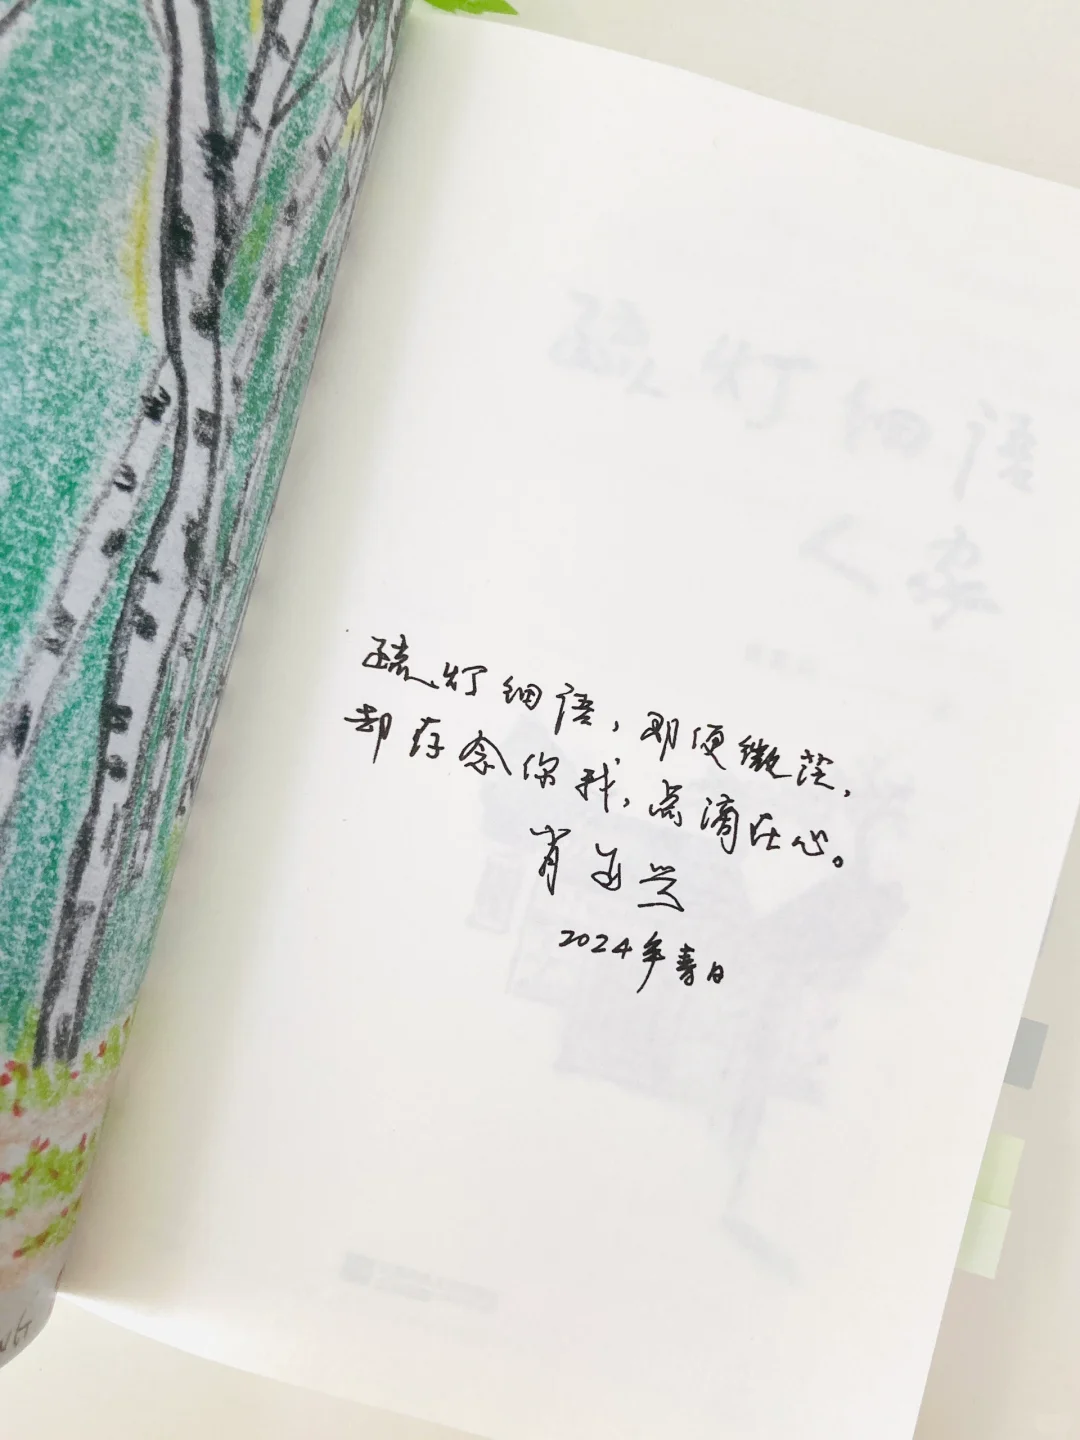 疏灯细语，即便微茫，
却存念你我，点滴在心。
肖复兴
2024年春日